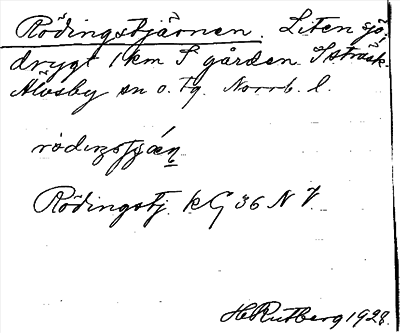 Rödingstjärnen. Liten sjö,
drygt 1 km S gården Isträsk.
Älvsby sn o. tg. Norrb. l.
Rödingstj. kG 36 N V.
H Rutberg 1928.